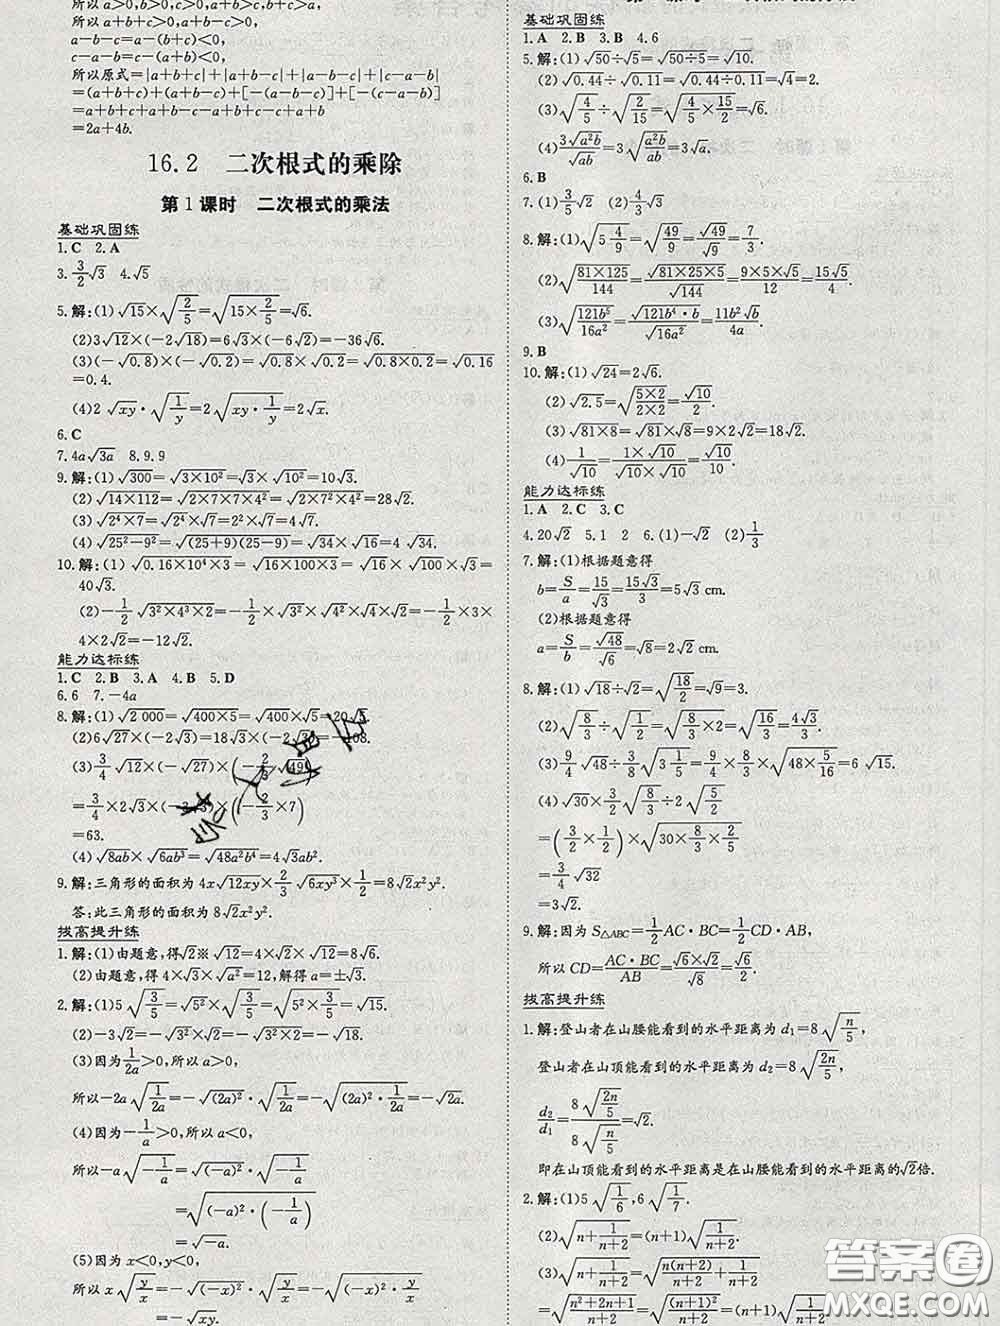 所以a+b+c>0, b+c>a, c+b>a.
所以a+b+c>0, a+b-c>0,
a-b-c=a-(b+c)<0,
c-a-b=c-(a+b)<0,
所以原式=|a+b+c|+|a+b-c|+|a-b-c|+|c-a-b|
=(a+b+c)+(a+b-c)+[-(a-b-c)]+[-(c-a-b)]
=a+b+c+a+b-c-a+b+c-c+a+b
=2a+4b.
16.2 二次根式的乘除
第1课时 二次根式的乘法
基础巩固练
1.C 2.A
3. 3/2√3 4.√5
5.解:(1)√15×√(2/5)=√(15×2/5)=√6.
(2)3√12×(-2√18)=6√3×(-6√2)=-36√6.
(3)(-√0.8)×(-√0.2)=√0.8×√0.2=√(0.8×0.2)=√0.16
=0.4.
(4)2√(xy)·√(1/y)=2√(xy·1/y)=2√x.
6.C
7.4a√(3a) 8.9.9
9.解:(1)√300=√(3×10²)=√3×√10²=10√3.
(2)√(14×112)=√(2×7×7×4²)=√2×√7²×√4²=28√2.
(3)√(2⁴×7)=√2⁴×√7=2²√7=4√7.
(4)√(25²-9²)=√((25+9)(25-9))=√34×√16=4√34.
10.解:(1)√(0.16×10⁴×3)=√16×√100×√3=
40√3.
(2)-1/2√(3²×4³×2)=-1/2×√3²×√4³×√2=-1/2×3×
4×2√2=-12√2.
能力达标练
1.C 2.B 3.A 4.B 5.D
6.6 7.-4a
8.解:(1)√2 000=√(400×5)=√400×√5=20√5.
(2)6√27×(-2√3)=18√3×(-2√3)=-108.
(3)3/4√12×(-√27)×(-2/3√49)
=3/4×2√3×(-3√3)×(-2/3×7)
=63.
(4)√(8ab)×√(6ab³)=√(48a²b⁴)=4√3ab².
9.解:三角形的面积为4x√(12xy)×2/3√(6xy³)=8√2x²y².
答:此三角形的面积为8√2x²y².
拔高提升练
1.解:(1)由题意,得√2※√12=4×√2×√12=8√6.
(2)由题意,得4×√3×√a²=12,解得a=±√3.
2.解:(1)5√(3/5)=√5²×√(3/5)=√(5²×3/5)=√15.
(2)-3√2=-√3²×√2=-√(3²×2)=-√18.
(3)因为1/2a>0,所以a>0,
所以-2a√(1/2a)=-√(2a)²·√(1/2a)=-√((2a)²·1/2a)=-√(2a).
(4)因为-1/a>0,所以a<0,
所以-a√(-1/a)=√(-a)²·√(-1/a)
=√((-a)²·(-1/a))
=√(-a).
(5)因为x<0,y<0,
所以x√(y/x)=-√(-x)²·√(y/x)=-√((-x)²·y/x)
=-√(xy).
基础巩固练
1.A 2.B 3.B 4.6
5.解:(1)√50÷√5=√(50÷5)=√10.
(2)√0.44÷√0.11=√(0.44÷0.11)=√4=2.
(3)√(4/5)÷√(2/15)=√(4/5×15/2)=√6.
(4)3√(a²b)/√(ab)=3√(a²b/ab)=3√a.
6.B
7.(1)3/5√2 (2)4/3√3
8.解:(1)√(5 4/9)=√(49/9)=√49/√9=7/3.
(2)√(81×125/144)=√(81×25×5)/√144=9×5×√5/12=15√5/4.
(3)√(121b⁵/16a²)=√(121b⁴·b)/√(16a²)=11b²√b/4a.
9.B
10.解:(1)√24=2√6.
(2)√2.5=√(5×2/2×2)=√10/2.
(3)√(81×8)=√81×√8=9×2√2=18√2.
(4)1/√10=1×√10/√10×√10=√10/10.
能力达标练
1.A 2.C 3.C
4.20√2 5.1 2 6.(1)-√2 (2)1/3
7.解:(1)根据题意得
b=S/a=15/√3=15√3/3=5√3 cm.
(2)根据题意得
a=S/b=√48/√6=√8=2√2 cm.
8.解:(1)√18÷√2=√(18/2)=√9=3.
(2)√(8/3)÷√(1/2)=√(8/3×2)=√(16/3)=4√3/3.
(3)9/4√48÷3/8√(3 1/5)=9/4×8/3×√(48×5/16)=6√15.
(4)√30×3/2√(8/3)÷2√(5/2)
=(3/2×1/2)×√(30×8/3×2/5)
=3/4√32
=3√2.
9.解:因为S△ABC=1/2AC·BC=1/2CD·AB,
所以CD=AC·BC/AB=√6×√2/√8=√6/2.
拔高提升练
1.解:登山者在山腰能看到的水平距离为d₁=8√(n/5),
登山者在山顶能看到的水平距离为d₂=8√(2n/5),
d₂/d₁=8√(2n/5)/8√(n/5)=√2.
即在山顶能看到的水平距离是在山腰能看到的水平距离的√2倍.
2.解:(1)5√(1/6),6√(1/7).
(2)√(n+1/(n+2))=(n+1)√(1/(n+2)).
(3)√(n+1/(n+2))=√(n(n+2)/(n+2)+1/(n+2))
=√((n²+2n+1)/(n+2))
答案圈
MXQE.COM